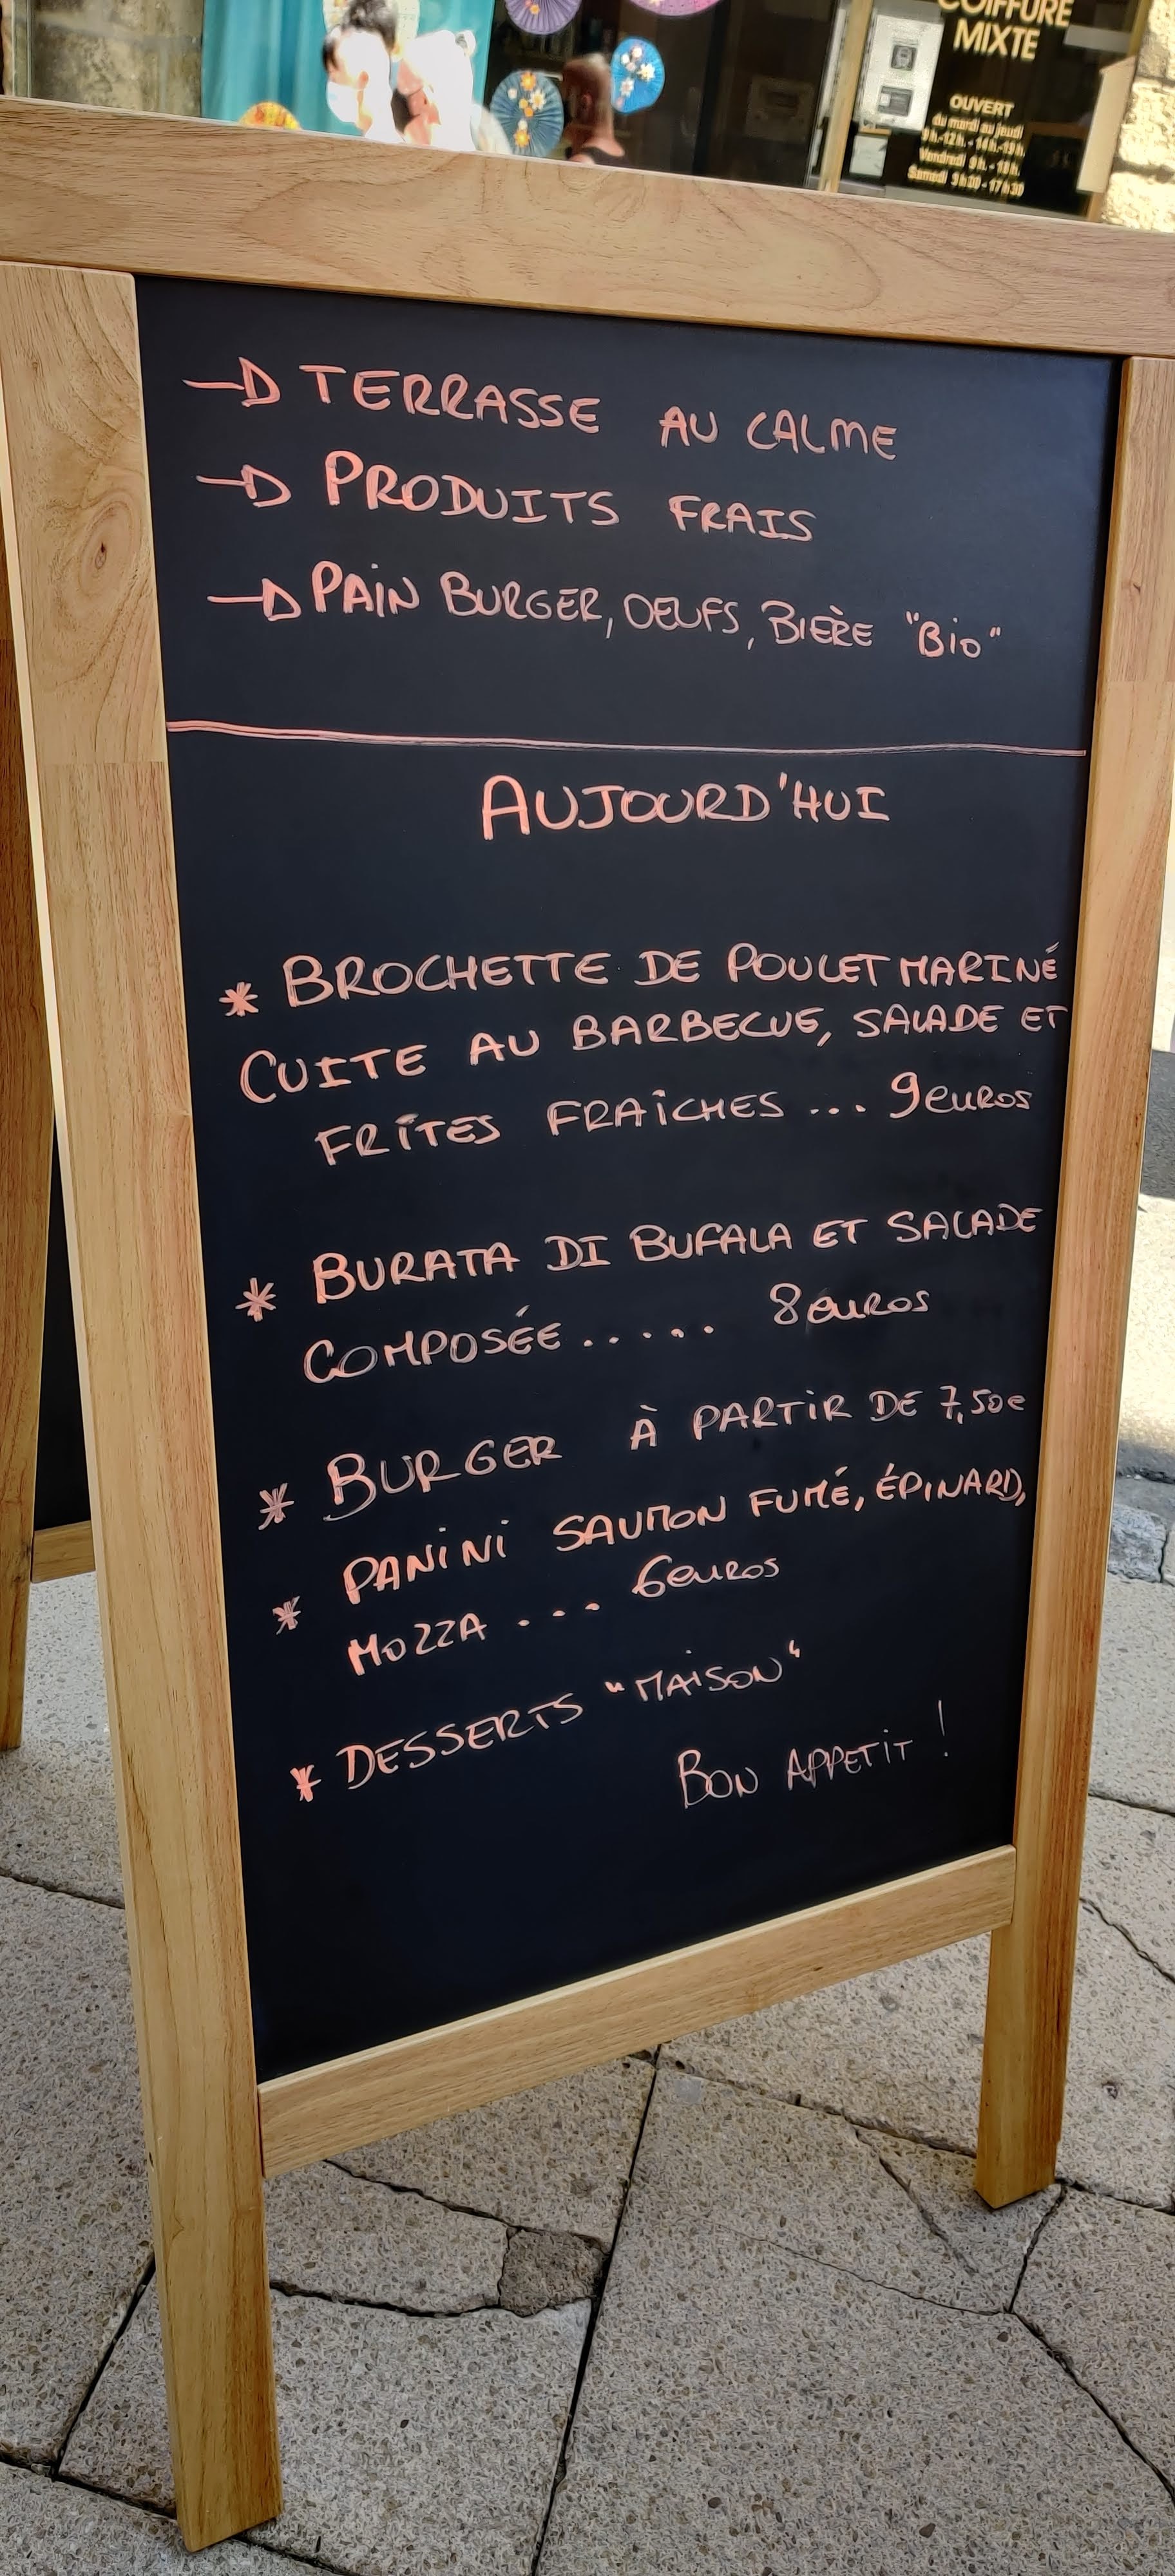 COIFFURE
MIXTE
OUVERT
du mardi au jeudi
9h.-12h. - 14h.-19h.
Vendredi 9h. - 18h.
Samedi
→ TERRASSE AU CALME
→ PRODUITS FRAIS
→ PAIN BURGER, OEUFS, BIÈRE "BIO"
AUJOURD'HUI
* BROCHETTE DE POULET MARINÉ
CUITE AU BARBECUE, SALADE ET
FRITES FRAÎCHES ... 9euros
* BURATA DI BUFALA ET SALADE
COMPOSÉE ..... 8euros
* BURGER À PARTIR DE 7,50e
* PANINI SAUMON FUMÉ, ÉPINARD,
MOZZA ... 6euros
* DESSERTS "MAISON"
BON APPETIT !